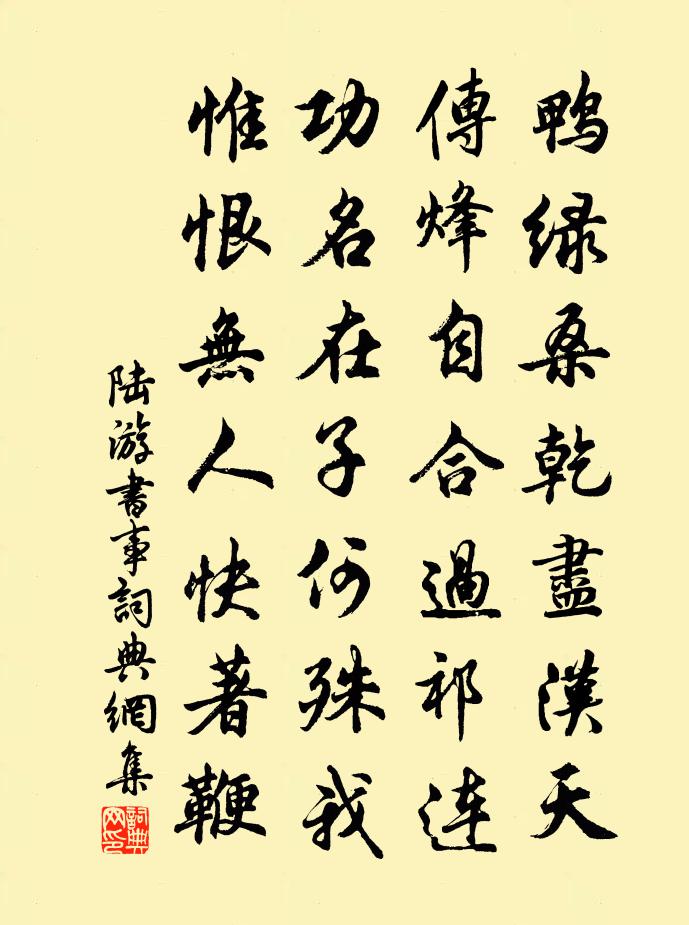 鸭绿桑乾盡漢天
傳烽自合過祁连
功名在子何殊我
惟恨無人快著鞭
陆游書事詞典網集
詞典网印